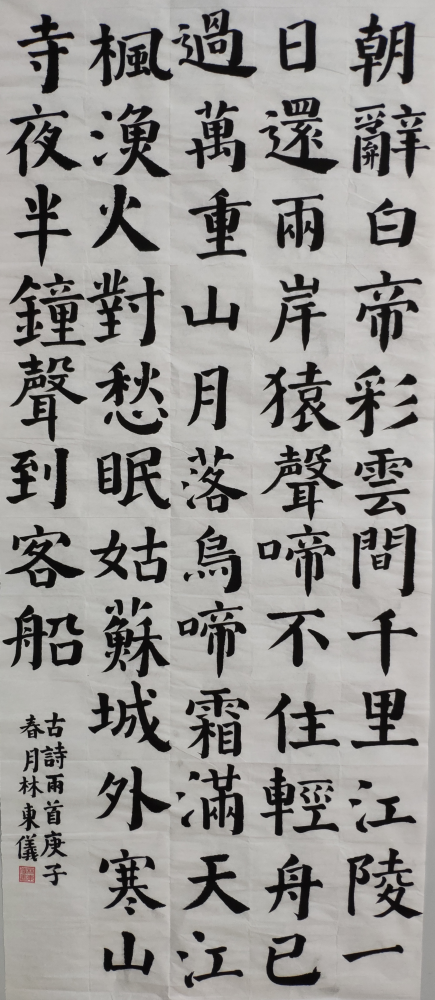 朝辭白帝彩雲間千里江陵一
日還兩岸猿聲啼不住輕舟已
過萬重山月落烏啼霜滿天江
楓漁火對愁眠姑蘇城外寒山
寺夜半鐘聲到客船
古詩兩首庚子
春月林東儀